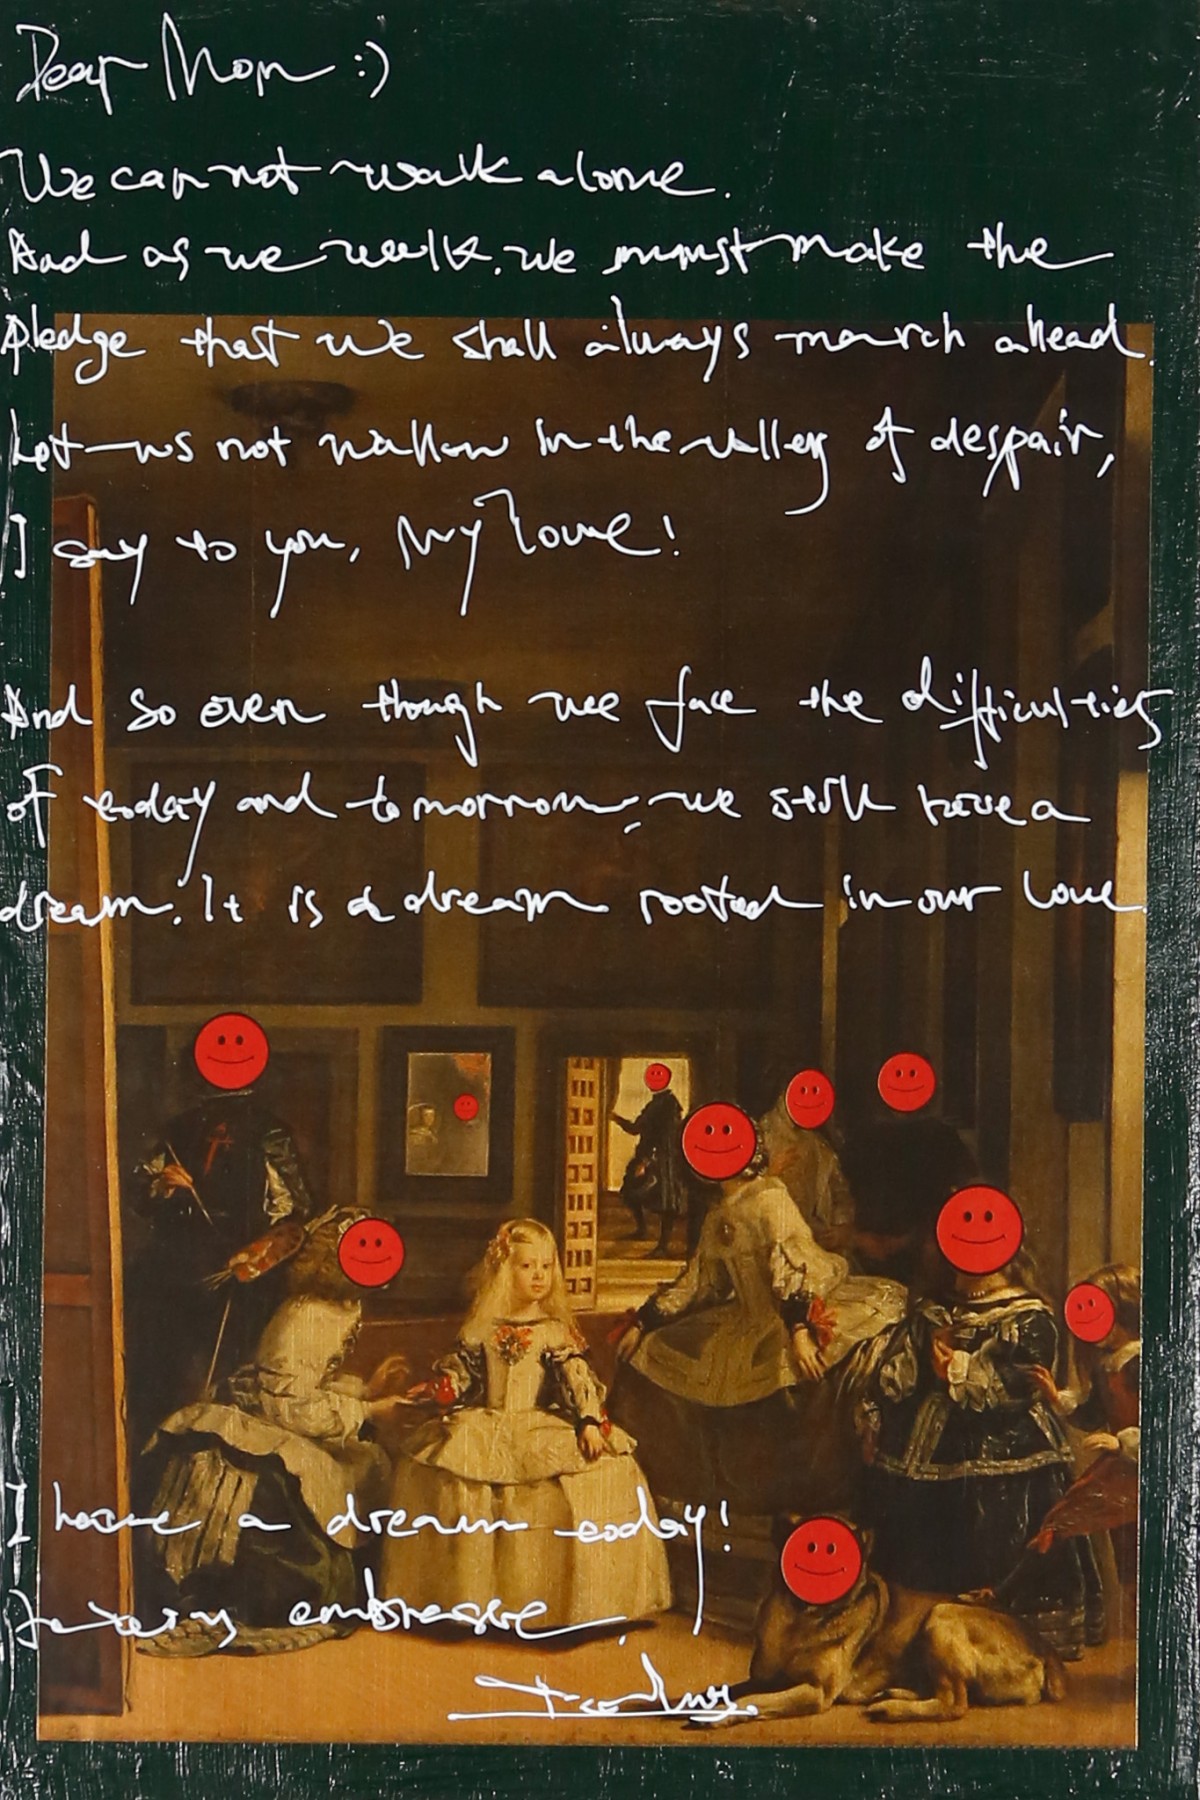 Dear Mom :)
We can not walk alone.
And as we walk, we must make the
pledge that we shall always march ahead.
Let us not wallow in the valley of despair,
I say to you, My love!
And so even though we face the difficulties
of today and tomorrow, we still have a
dream. It is a dream rooted in our love.
I have a dream today!